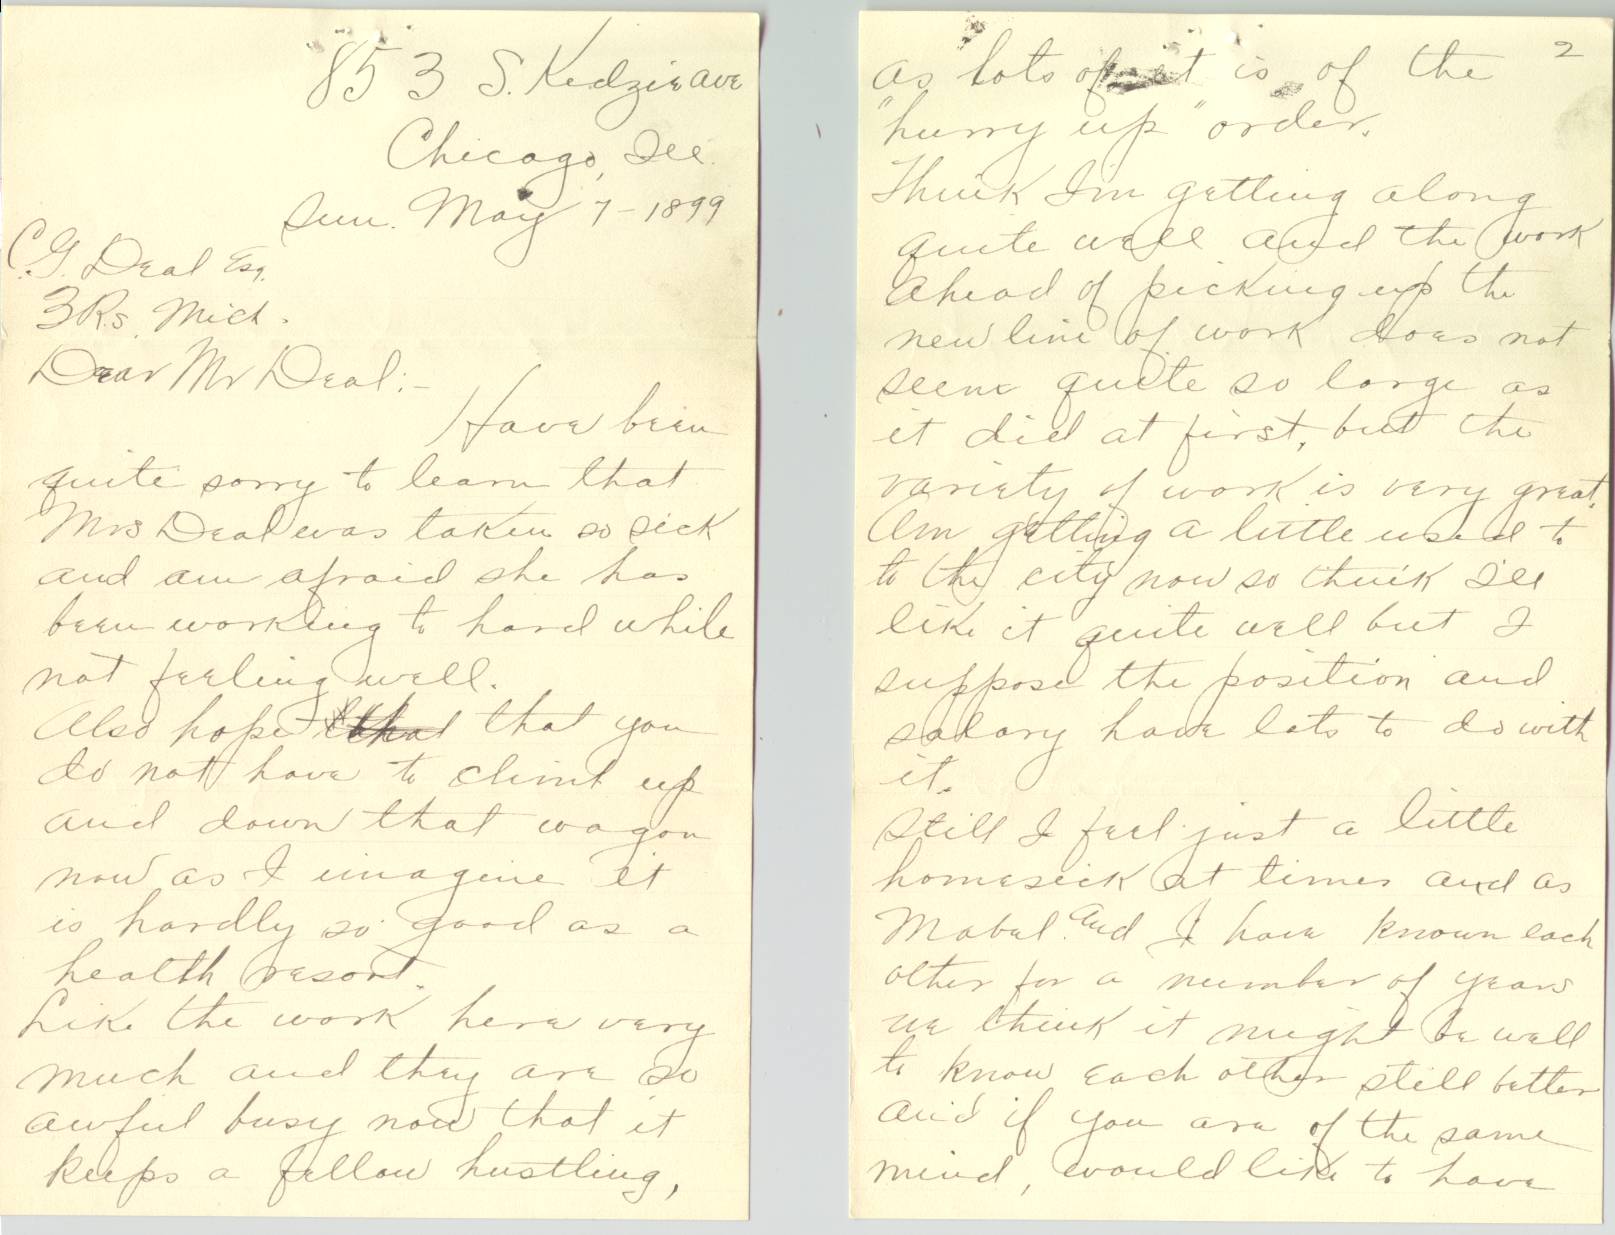 853 S. Kedzie ave
Chicago, Ill.
Sun. May 7-1899
C. G. Deal Esq.
3 Rs. Mich.
Dear Mr Deal:-
Have been
quite sorry to learn that
Mrs Deal was taken so sick
and am afraid she has
been working to hard while
not feeling well.
Also hope that that you
do not have to climb up
and down that wagon
now as I imagine it
is hardly so good as a
health resort.
Like the work here very
much and they are so
awful busy now that it
keeps a fellow hustling,
2
as lots of it is of the
"hurry up" order.
Think I'm getting along
quite well and the work
ahead of picking up the
new line of work does not
seem quite so large as
it did at first, but the
variety of work is very great.
Am getting a little used to
to the city now so think I'll
like it quite well but I
suppose the position and
salary have lots to do with
it.
Still I feel just a little
homesick at times and as
Mabel and I have known each
other for a number of years
we think it might be well
to know each other still better
and if you are of the same
mind, would like to have